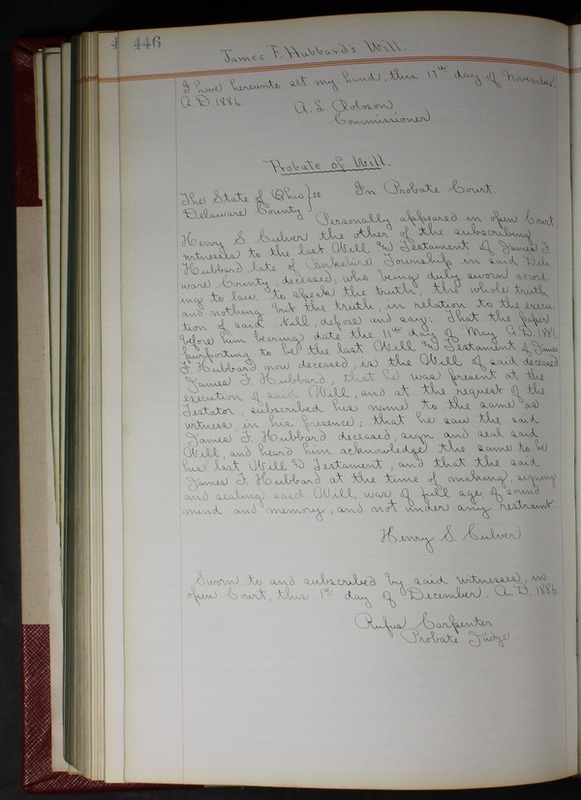 446
James F. Hubbard's Will.
I have hereunto set my hand, this 17th day of November
A.D. 1886
A. S. Robson
Commissioner
Probate of Will.
The State of Ohio } ss In Probate Court
Delaware County
Personally appeared in open Court
Henry S. Culver the other of the subscribing
witnesses to the last Will and Testament of James F.
Hubbard late of Berkshire Township in said Dela-
ware County, deceased, who being duly sworn accord
ing to law, to speak the truth, the whole truth
and nothing but the truth, in relation to the execu-
tion of said Will, depose and say: That the paper
before him bearing date the 11th day of May A.D. 1881,
purporting to be the last Will and Testament of James
F. Hubbard now deceased, is the Will of said deceased
James F. Hubbard, that he was present at the
execution of said Will, and at the request of the
Testator subscribed his name to the same as
witness, in his presence; that he saw the said
James F. Hubbard deceased, sign and seal said
Will, and heard him acknowledge the same to be
his last Will & Testament, and that the said
James F. Hubbard at the time of making, signing
and sealing said Will, was of full age of sound
mind and memory, and not under any restraint.
Henry S. Culver
Sworn to and subscribed by said witnesses, in
open Court, this 1st day of December. A.D. 1886.
Rufus Carpenter
Probate Judge